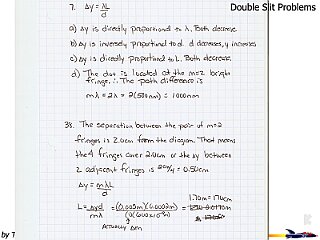 Double Slit Problems
7. Δy = λL/d
a) Δy is directly proportional to λ. Both decrease
b) Δy is inversely proportional to d. d decreases, y increases
c) Δy is directly proportional to L. Both decrease
d) The dot is located at the m=2 bright
fringe. ∴ The path difference is
mλ = 2λ = 2(500nm) = 1000nm
38. The separation between the pair of m=2
fringes is 2.0cm from the diagram. That means
the 4 fringes cover 2.0cm or the Δy between
2 adjacent fringes is 2.0/4 = 0.50cm
Δy = mλL/d
1.70m = 170cm
L = Δyd/mλ = (0.005m)(0.0002m)/
Actually Δm
by T